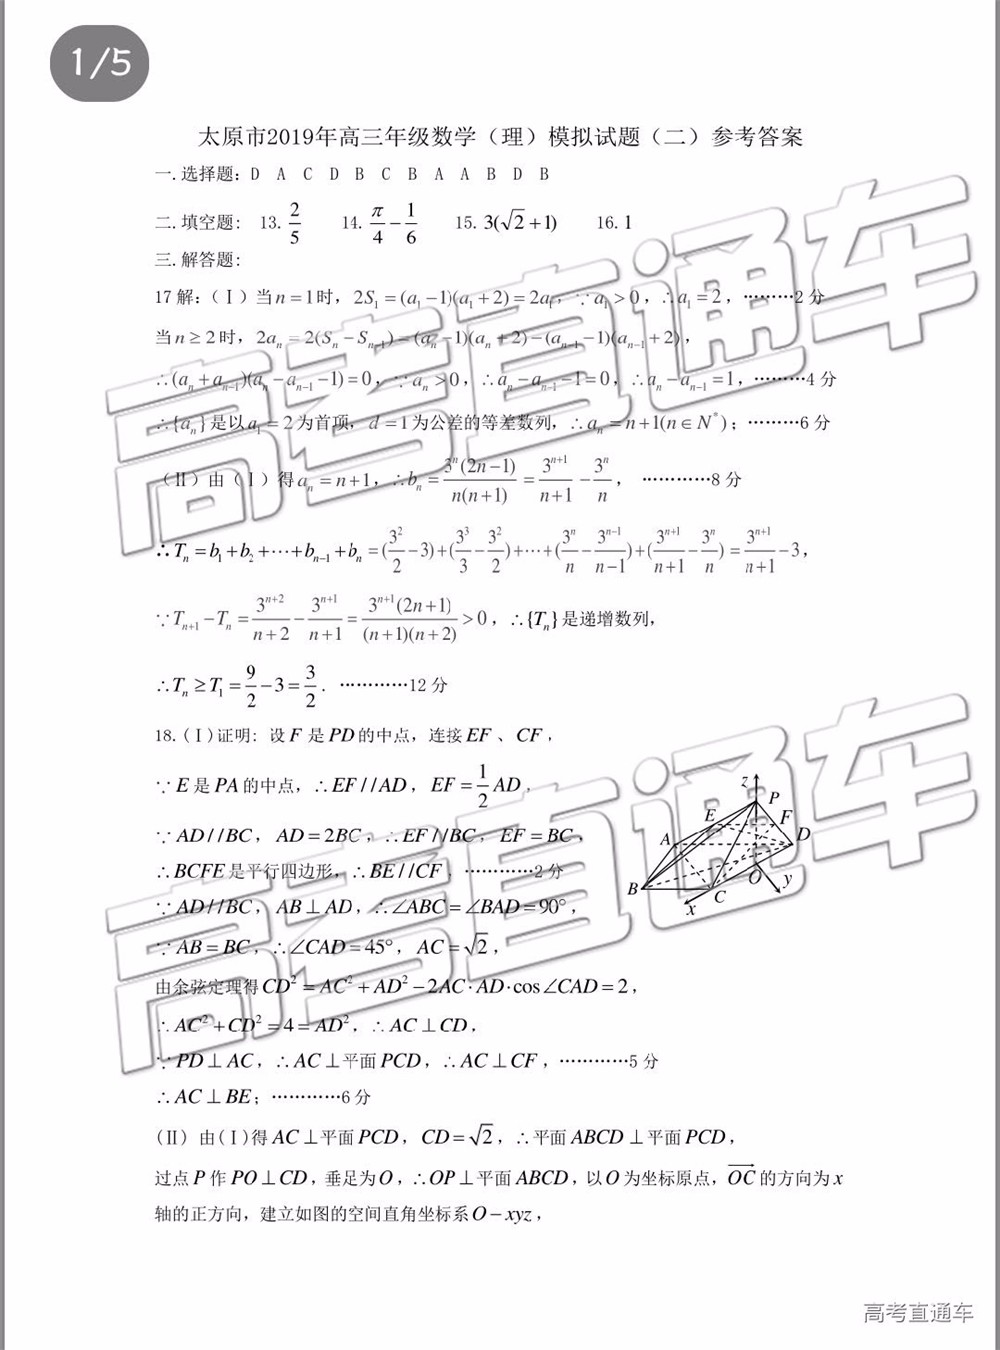 1/5
太原市2019年高三年级数学（理）模拟试题（二）参考答案
一.选择题：D A C D B C B A A B D B
二.填空题： 13. 2/5 14. π/4 − 1/6 15. 3(√2+1) 16. 1
三.解答题：
17解:（Ⅰ）当n=1时，2S₁=(a₁−1)(a₁+2)=2a₁，∵a₁>0，∴a₁=2，………2分
当n≥2时，2aₙ=2(Sₙ−Sₙ₋₁)=(aₙ−1)(aₙ+2)−(aₙ₋₁−1)(aₙ₋₁+2)，
∴(aₙ+aₙ₋₁)(aₙ−aₙ₋₁−1)=0，∵aₙ>0，∴aₙ−aₙ₋₁−1=0，∴aₙ−aₙ₋₁=1，………4分
∴{aₙ}是以a₁=2为首项，d=1为公差的等差数列，∴aₙ=n+1(n∈N*)；………6分
（Ⅱ）由（Ⅰ）得aₙ=n+1，∴bₙ=3ⁿ(2n−1)/n(n+1)=3ⁿ⁺¹/(n+1)−3ⁿ/n， …………8分
∴Tₙ=b₁+b₂+⋯+bₙ₋₁+bₙ=(3²/2−3)+(3³/3−3²/2)+⋯+(3ⁿ/n−3ⁿ⁻¹/(n−1))+(3ⁿ⁺¹/(n+1)−3ⁿ/n)=3ⁿ⁺¹/(n+1)−3，
∵Tₙ₊₁−Tₙ=3ⁿ⁺²/(n+2)−3ⁿ⁺¹/(n+1)=3ⁿ⁺¹(2n+1)/(n+1)(n+2)>0，∴{Tₙ}是递增数列，
∴Tₙ≥T₁=9/2−3=3/2. …………12分
18.(Ⅰ)证明：设F是PD的中点，连接EF、CF，
∵E是PA的中点，∴EF//AD，EF=1/2AD，
∵AD//BC，AD=2BC，∴EF//BC，EF=BC，
∴BCFE是平行四边形，∴BE//CF，…………2分
∵AD//BC，AB⊥AD，∴∠ABC=∠BAD=90°，
∵AB=BC，∴∠CAD=45°，AC=√2，
由余弦定理得CD²=AC²+AD²−2AC·AD·cos∠CAD=2，
∴AC²+CD²=4=AD²，∴AC⊥CD，
∵PD⊥AC，∴AC⊥平面PCD，∴AC⊥CF，…………5分
∴AC⊥BE；…………6分
z
P
E
F
A
D
B
C
O
y
x
(Ⅱ) 由(Ⅰ)得AC⊥平面PCD，CD=√2，∴平面ABCD⊥平面PCD，
过点P作PO⊥CD，垂足为O，∴OP⊥平面ABCD，以O为坐标原点，OC→的方向为x
轴的正方向，建立如图的空间直角坐标系O−xyz，
高考直通车
高考直通车
高考直通车